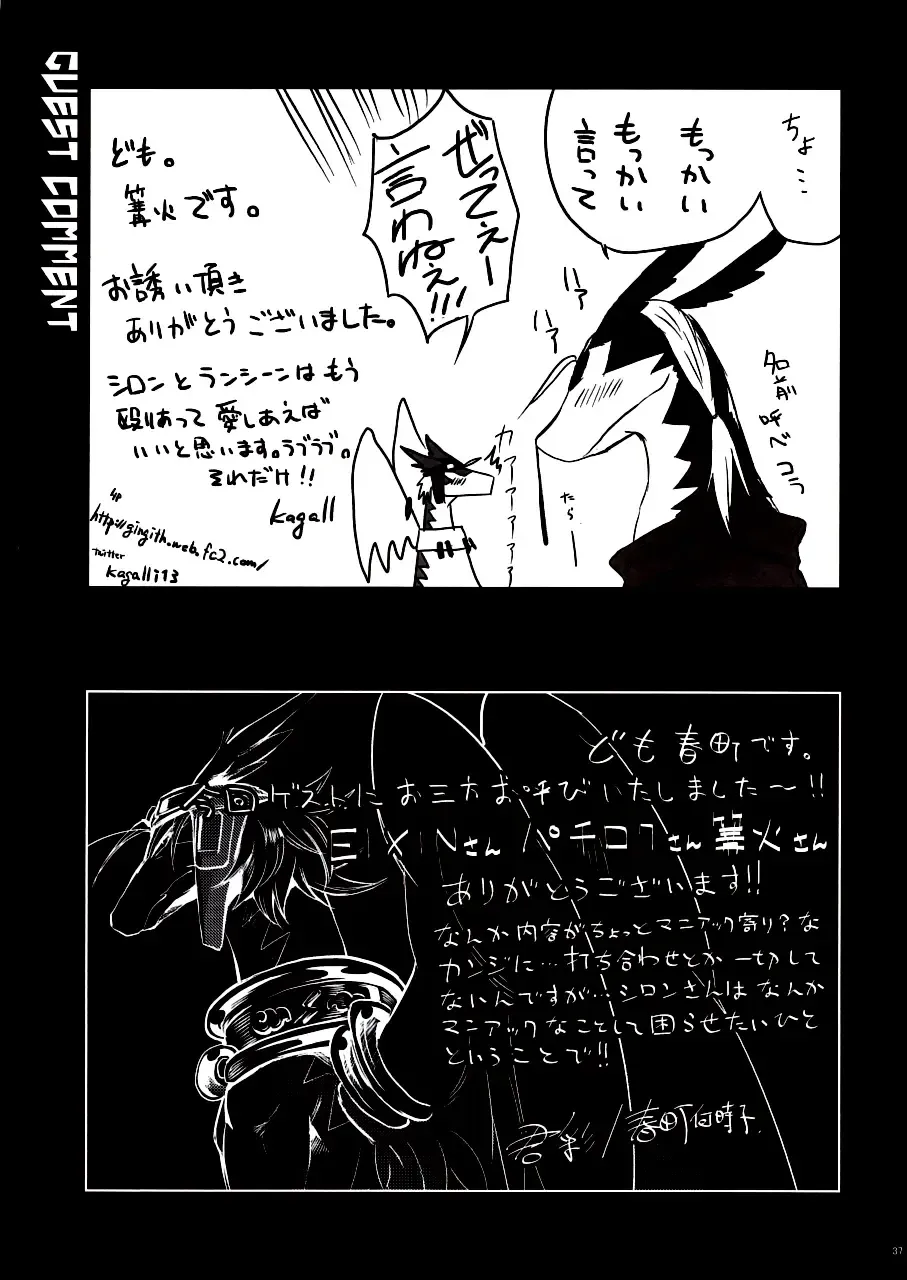 GUEST COMMENT
ちょ…
もっかい
もっかい
言って
ぜってぇー
言わねぇ!!!
ハァ
ハァ
ハァ
名前呼べコラ
カァァァァァ
たら
ども。
篝火です。
お誘い頂き
ありがとうございました。
シロンとランシーンはもう
殴りあって愛しあえば
いいと思います。ラブラブ。
それだけ!!
kagall
HP
http://gingith.web.fc2.com/
twitter
kagalli13
ども春町です。
ゲストにお三方お呼びいたしました〜!!
ヨ×Nさん パチロクさん 篝火さん
ありがとうございます!!
なんか内容がちょっとマニアック寄り?な
カンジに…打ち合わせとか一切して
ないんですが…シロンさんはなんか
マニアックなことして困らせたいひと
ということで!!
/春町何時子
37